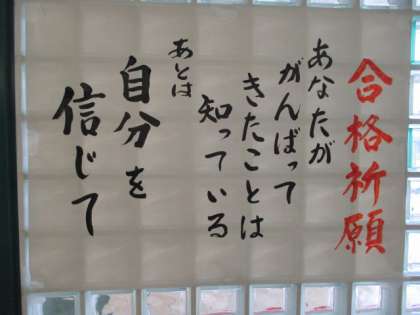 合格祈願
あなたが
がんばって
きたことは
知っている
あとは
自分を
信じて